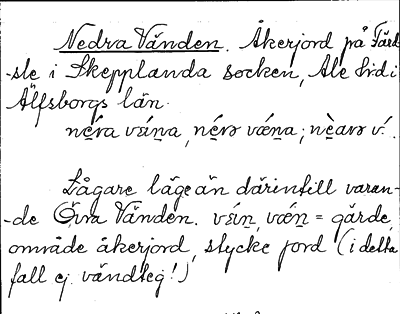 Nedra Vänden. Åkerjord på Färd-
-sle i Skepplanda socken, Ale hd i
Älfsborgs län.
nḙ́ra vɛ́ıṉa, nḙ́rɘ vǽṉa; nḙ̀arɘ v́.
Lågare läge än därintill varan-
-de Övra Vänden. vɛ́ıṉ, vǽṉ = gärde,
område åkerjord, stycke jord (i detta
fall ej vändteg!)